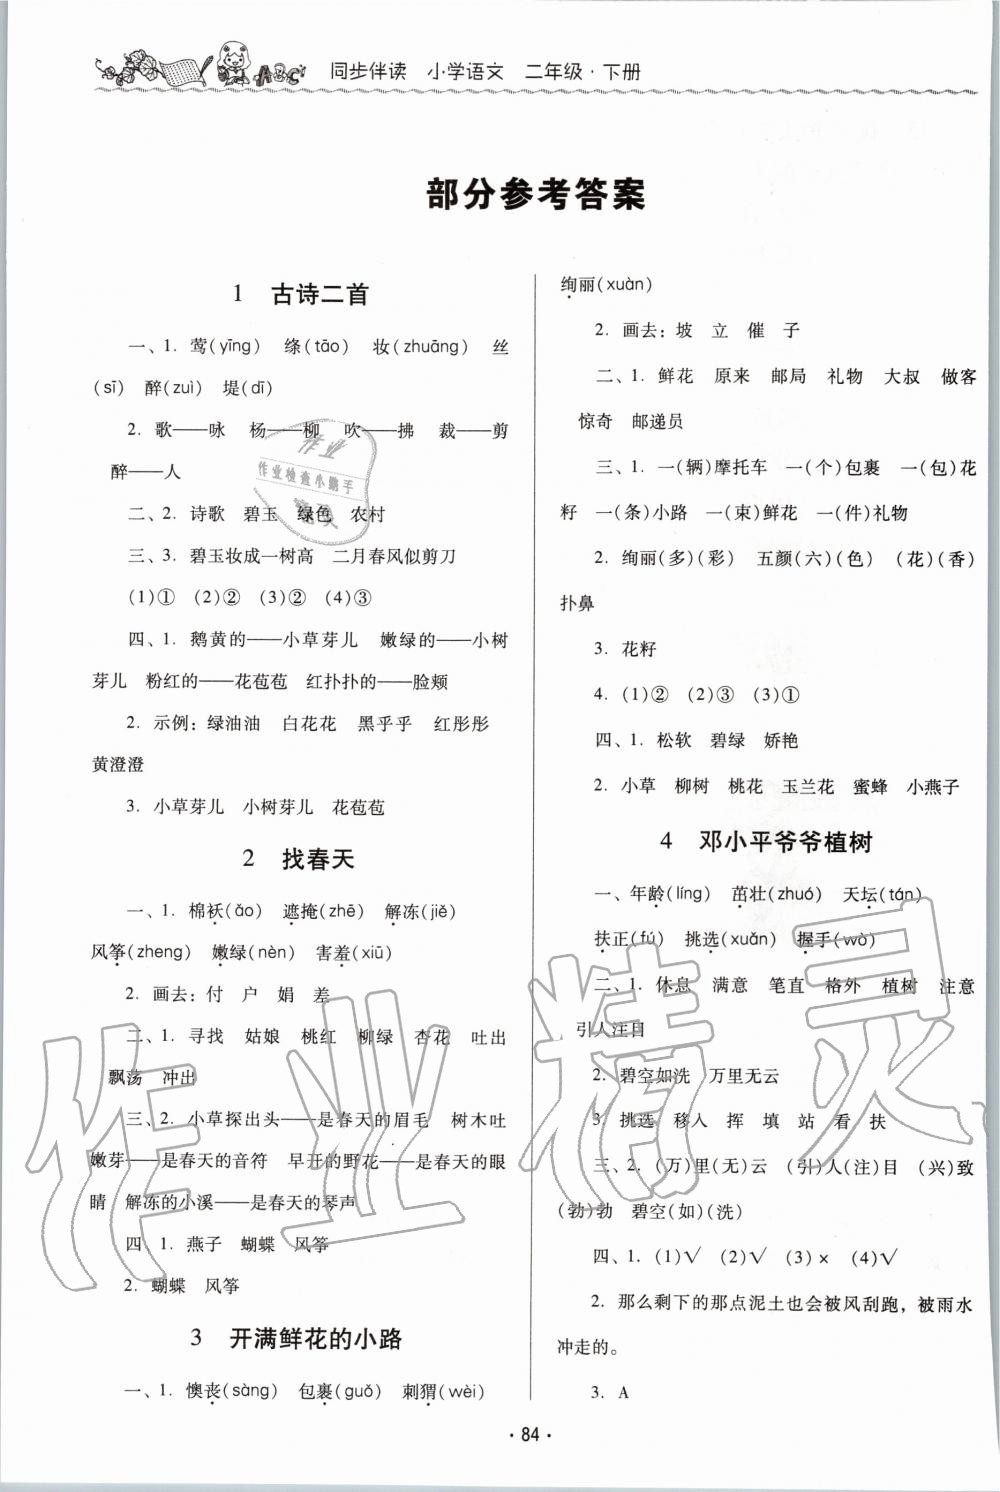 ABC
同步伴读 小学语文 二年级·下册
部分参考答案
1 古诗二首
一、1. 莺(yīng) 绦(tāo) 妆(zhuāng) 丝
(sī) 醉(zuì) 堤(dī)
2. 歌——咏 杨——柳 吹——拂 裁——剪
醉——人
二、2. 诗歌 碧玉 绿色 农村
三、3. 碧玉妆成一树高 二月春风似剪刀
(1)① (2)② (3)② (4)③
四、1. 鹅黄的——小草芽儿 嫩绿的——小树
芽儿 粉红的——花苞苞 红扑扑的——脸颊
2. 示例:绿油油 白花花 黑乎乎 红彤彤
黄澄澄
3. 小草芽儿 小树芽儿 花苞苞
2 找春天
一、1. 棉袄(ǎo) 遮掩(zhē) 解冻(jiě)
风筝(zheng) 嫩绿(nèn) 害羞(xiū)
2. 画去:付 户 娟 差
二、1. 寻找 姑娘 桃红 柳绿 杏花 吐出
飘荡 冲出
三、2. 小草探出头——是春天的眉毛 树木吐
嫩芽——是春天的音符 早开的野花——是春天的眼
睛 解冻的小溪——是春天的琴声
四、1. 燕子 蝴蝶 风筝
2. 蝴蝶 风筝
3 开满鲜花的小路
一、1. 懊丧(sàng) 包裹(guǒ) 刺猬(wèi)
绚丽(xuàn)
2. 画去:坡 立 催 子
二、1. 鲜花 原来 邮局 礼物 大叔 做客
惊奇 邮递员
三、1. 一(辆)摩托车 一(个)包裹 一(包)花
籽 一(条)小路 一(束)鲜花 一(件)礼物
2. 绚丽(多)(彩) 五颜(六)(色) (花)(香)
扑鼻
3. 花籽
4. (1)② (2)③ (3)①
四、1. 松软 碧绿 娇艳
2. 小草 柳树 桃花 玉兰花 蜜蜂 小燕子
4 邓小平爷爷植树
一、年龄(líng) 茁壮(zhuó) 天坛(tán)
扶正(fú) 挑选(xuǎn) 握手(wò)
二、1. 休息 满意 笔直 格外 植树 注意
引人注目
2. 碧空如洗 万里无云
3. 挑选 移入 挥 填 站 看 扶
三、2. (万)里(无)云 (引)人(注)目 (兴)致
(勃)勃 碧空(如)(洗)
四、1. (1)√ (2)√ (3)× (4)√
2. 那么剩下的那点泥土也会被风刮跑，被雨水
冲走的。
3. A
·84·
作业
作业检查小帮手
作业精灵